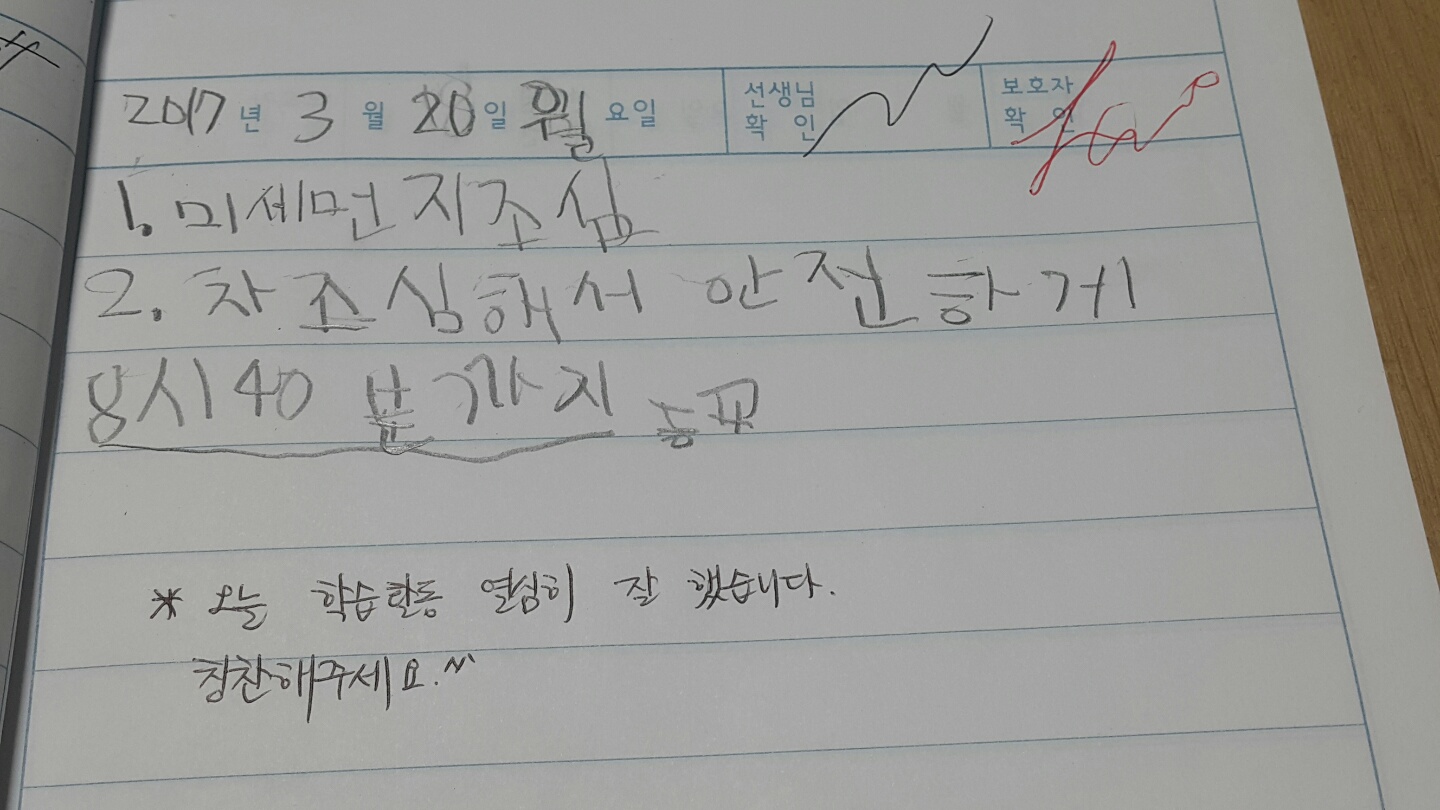 2017년 3월 20일 월요일 선생님 확인 보호자 확인
1. 미세먼지조심
2. 차조심해서 안전하게
8시40분까지 등교
* 오늘 학습활동 열심히 잘 했습니다.
칭찬해주세요.^^